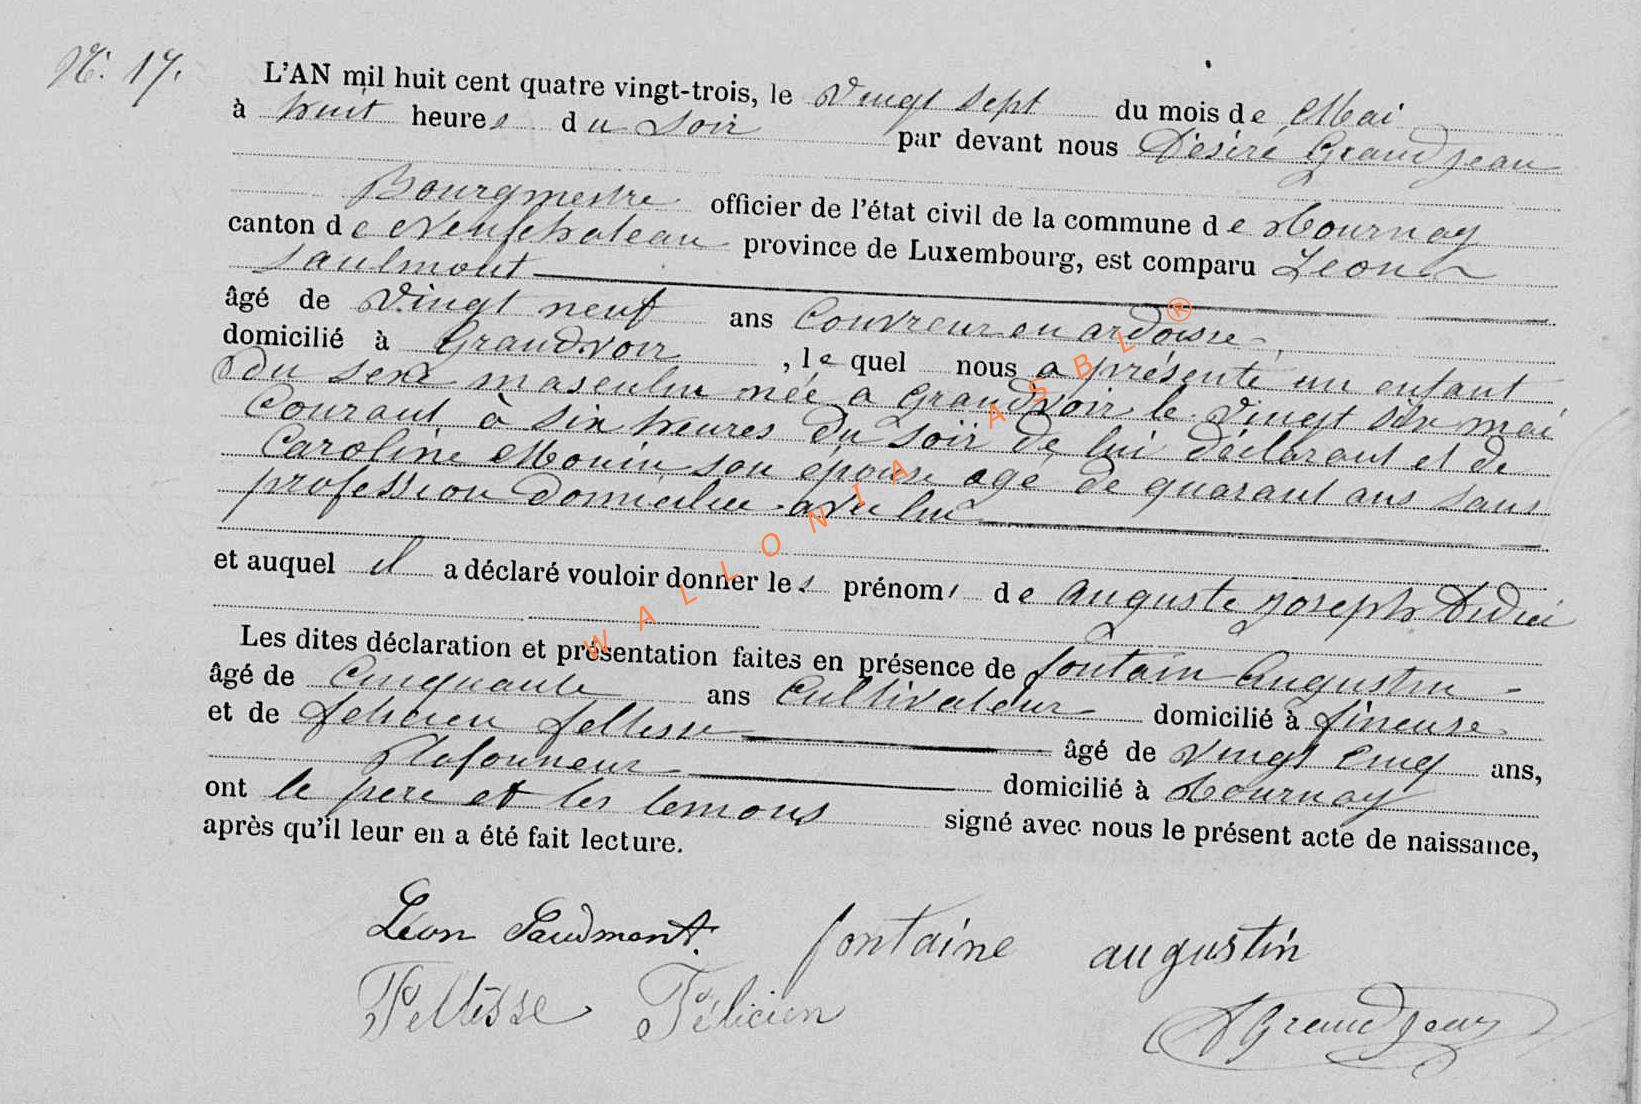 N.° 17.
L'AN mil huit cent quatre vingt-trois, le vingt sept du mois de Mai
à huit heures du soir par devant nous Désiré Grandjean
Bourgmestre officier de l'état civil de la commune de Tournay
canton de Neufchateau province de Luxembourg, est comparu Léon
Saulmont
âgé de vingt neuf ans Couvreur en ardoise,
domicilié à Grandvoir, lequel nous a présenté un enfant
du sexe masculin née a Grandvoir le vingt six mai
Courant à six heures du soir de lui déclarant et de
Caroline Monin son épouse agé de quarant ans sans
profession domiciliée avec lui
et auquel il a déclaré vouloir donner les prénoms de auguste joseph
Les dites déclaration et présentation faites en présence de fontain augustin
âgé de Cinquante ans Cultivateur domicilié à fineuse
et de félicien fellesse âgé de vingt cinq ans,
Plafonneur domicilié à Tournay
ont le pere et les temons signé avec nous le présent acte de naissance,
après qu'il leur en a été fait lecture.
Léon Saudmont. fontaine augustin
Peltésse Félicien DGrandjean
WALLONIA ASBL ®